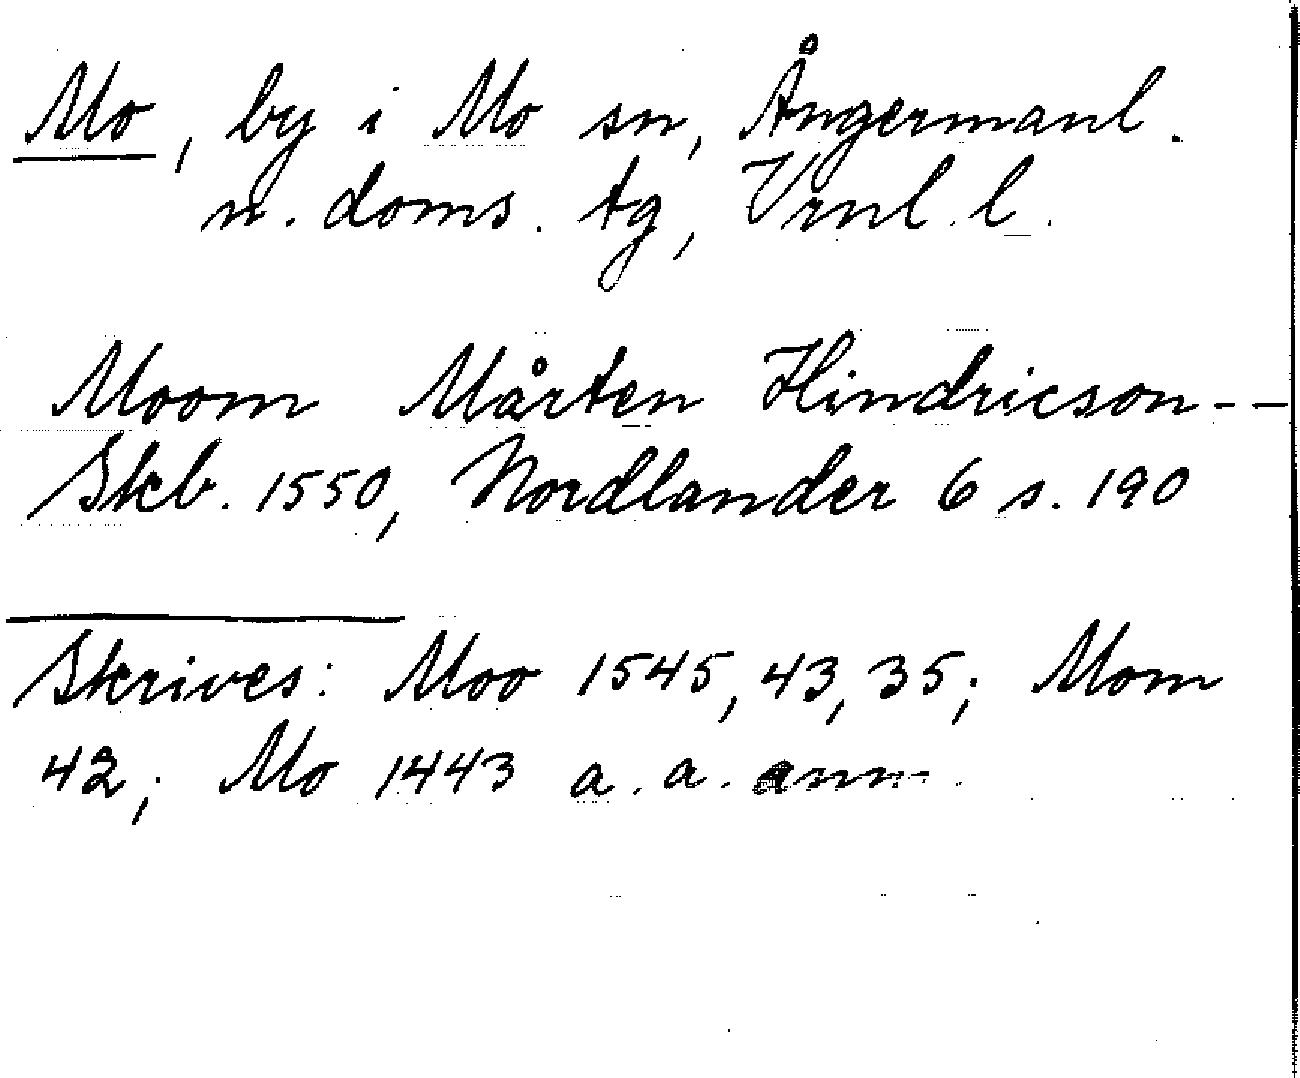 Mo, by i Mo sn, Ångermanl.
n. doms. tg, Vrnl. l.
Moom Mårten Hindricson --
Skb. 1550, Nordlander 6 s. 190
Skrives: Moo 1545, 43, 35; Mom
42; Mo 1443 a. a. anm.